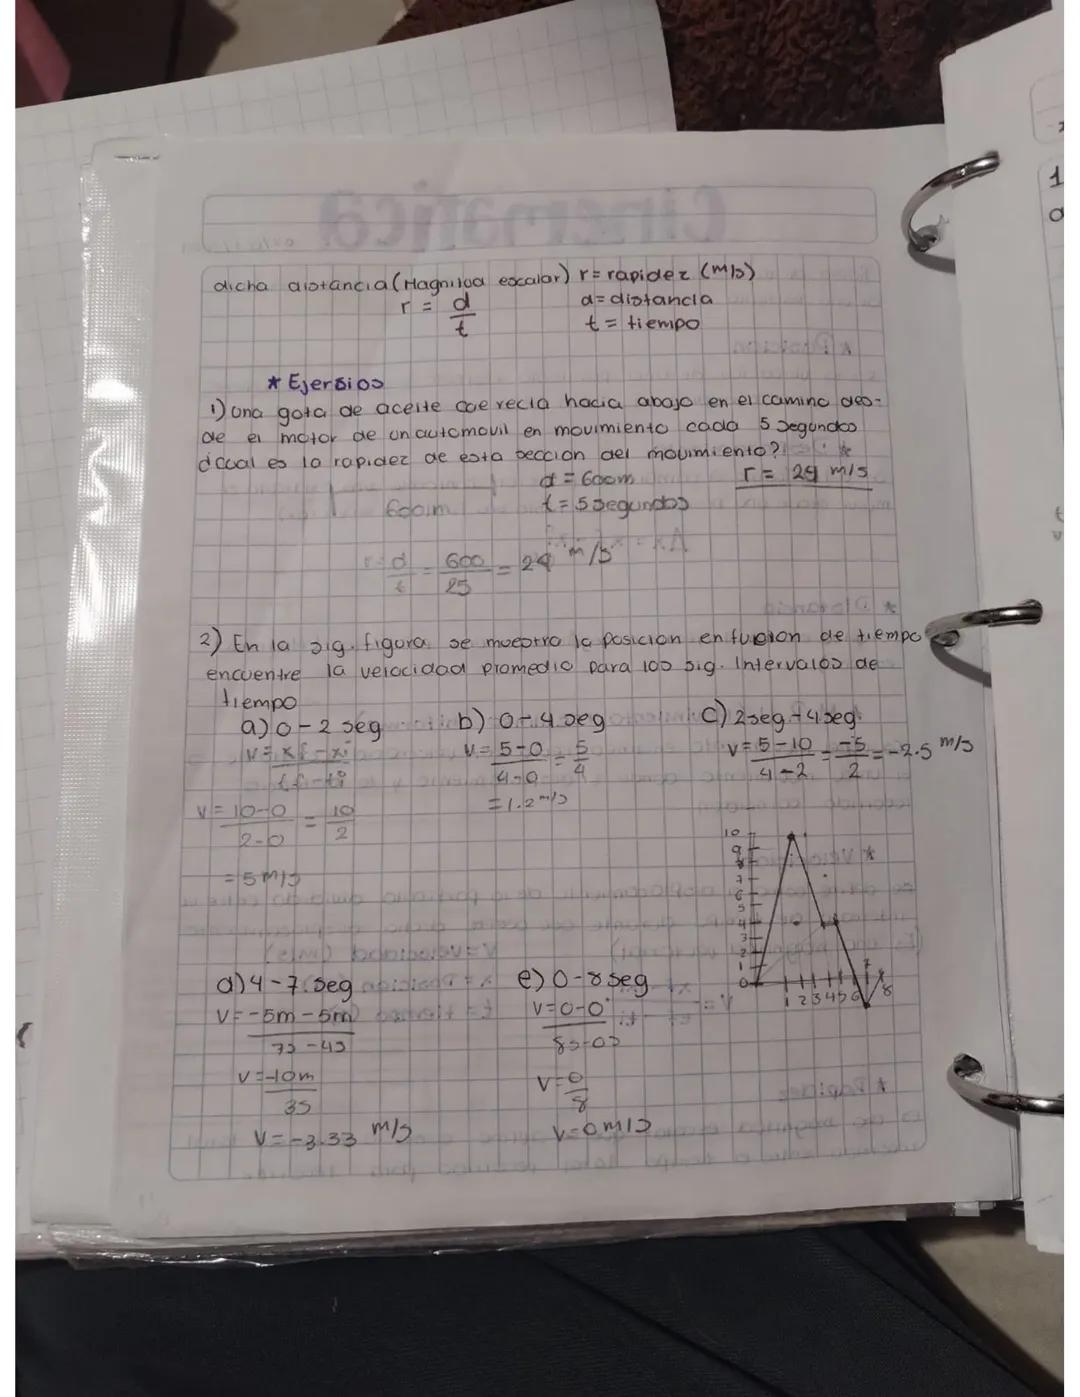 Cinematica
dicha distancia (Magnitud escalar) r = rapidez (m/s)
r = d/t
d = distancia
t = tiempo
* Ejersios
1) Una gota de aceite que recia hacia abajo en el camino des-
de el motor de un automovil en movimiento cada 5 segundos
¿cual es la rapidez de esta seccion del movimiento?
d = 600m
r = 24 m/s
600m
t = 5 segundos
r = d/t = 600/25 = 24 m/s
2) En la sig. figura se muestra la posicion en fusion de tiempo
encuentre la velocidad promedio para los sig. Intervalos de
tiempo
a) 0-2 seg
b) 0-4 seg
c) 2seg-4seg
V = xf-xi/tf-ti
V = 5-0/4-0 = 5/4
V = 5-10/4-2 = -5/2 = -2.5 m/s
= 1.2 m/s
V = 10-0/2-0 = 10/2
= 5 m/s
10
9
8
7
6
5
4
3
2
1
0
1 2 3 4 5 6 7 8
d) 4-7 seg
e) 0-8 seg
V = -5m-5m/7s-4s
V = 0-0/8s-0s
V = -10m/3s
V = 0/8
V = -3.33 m/s
V = 0 m/s